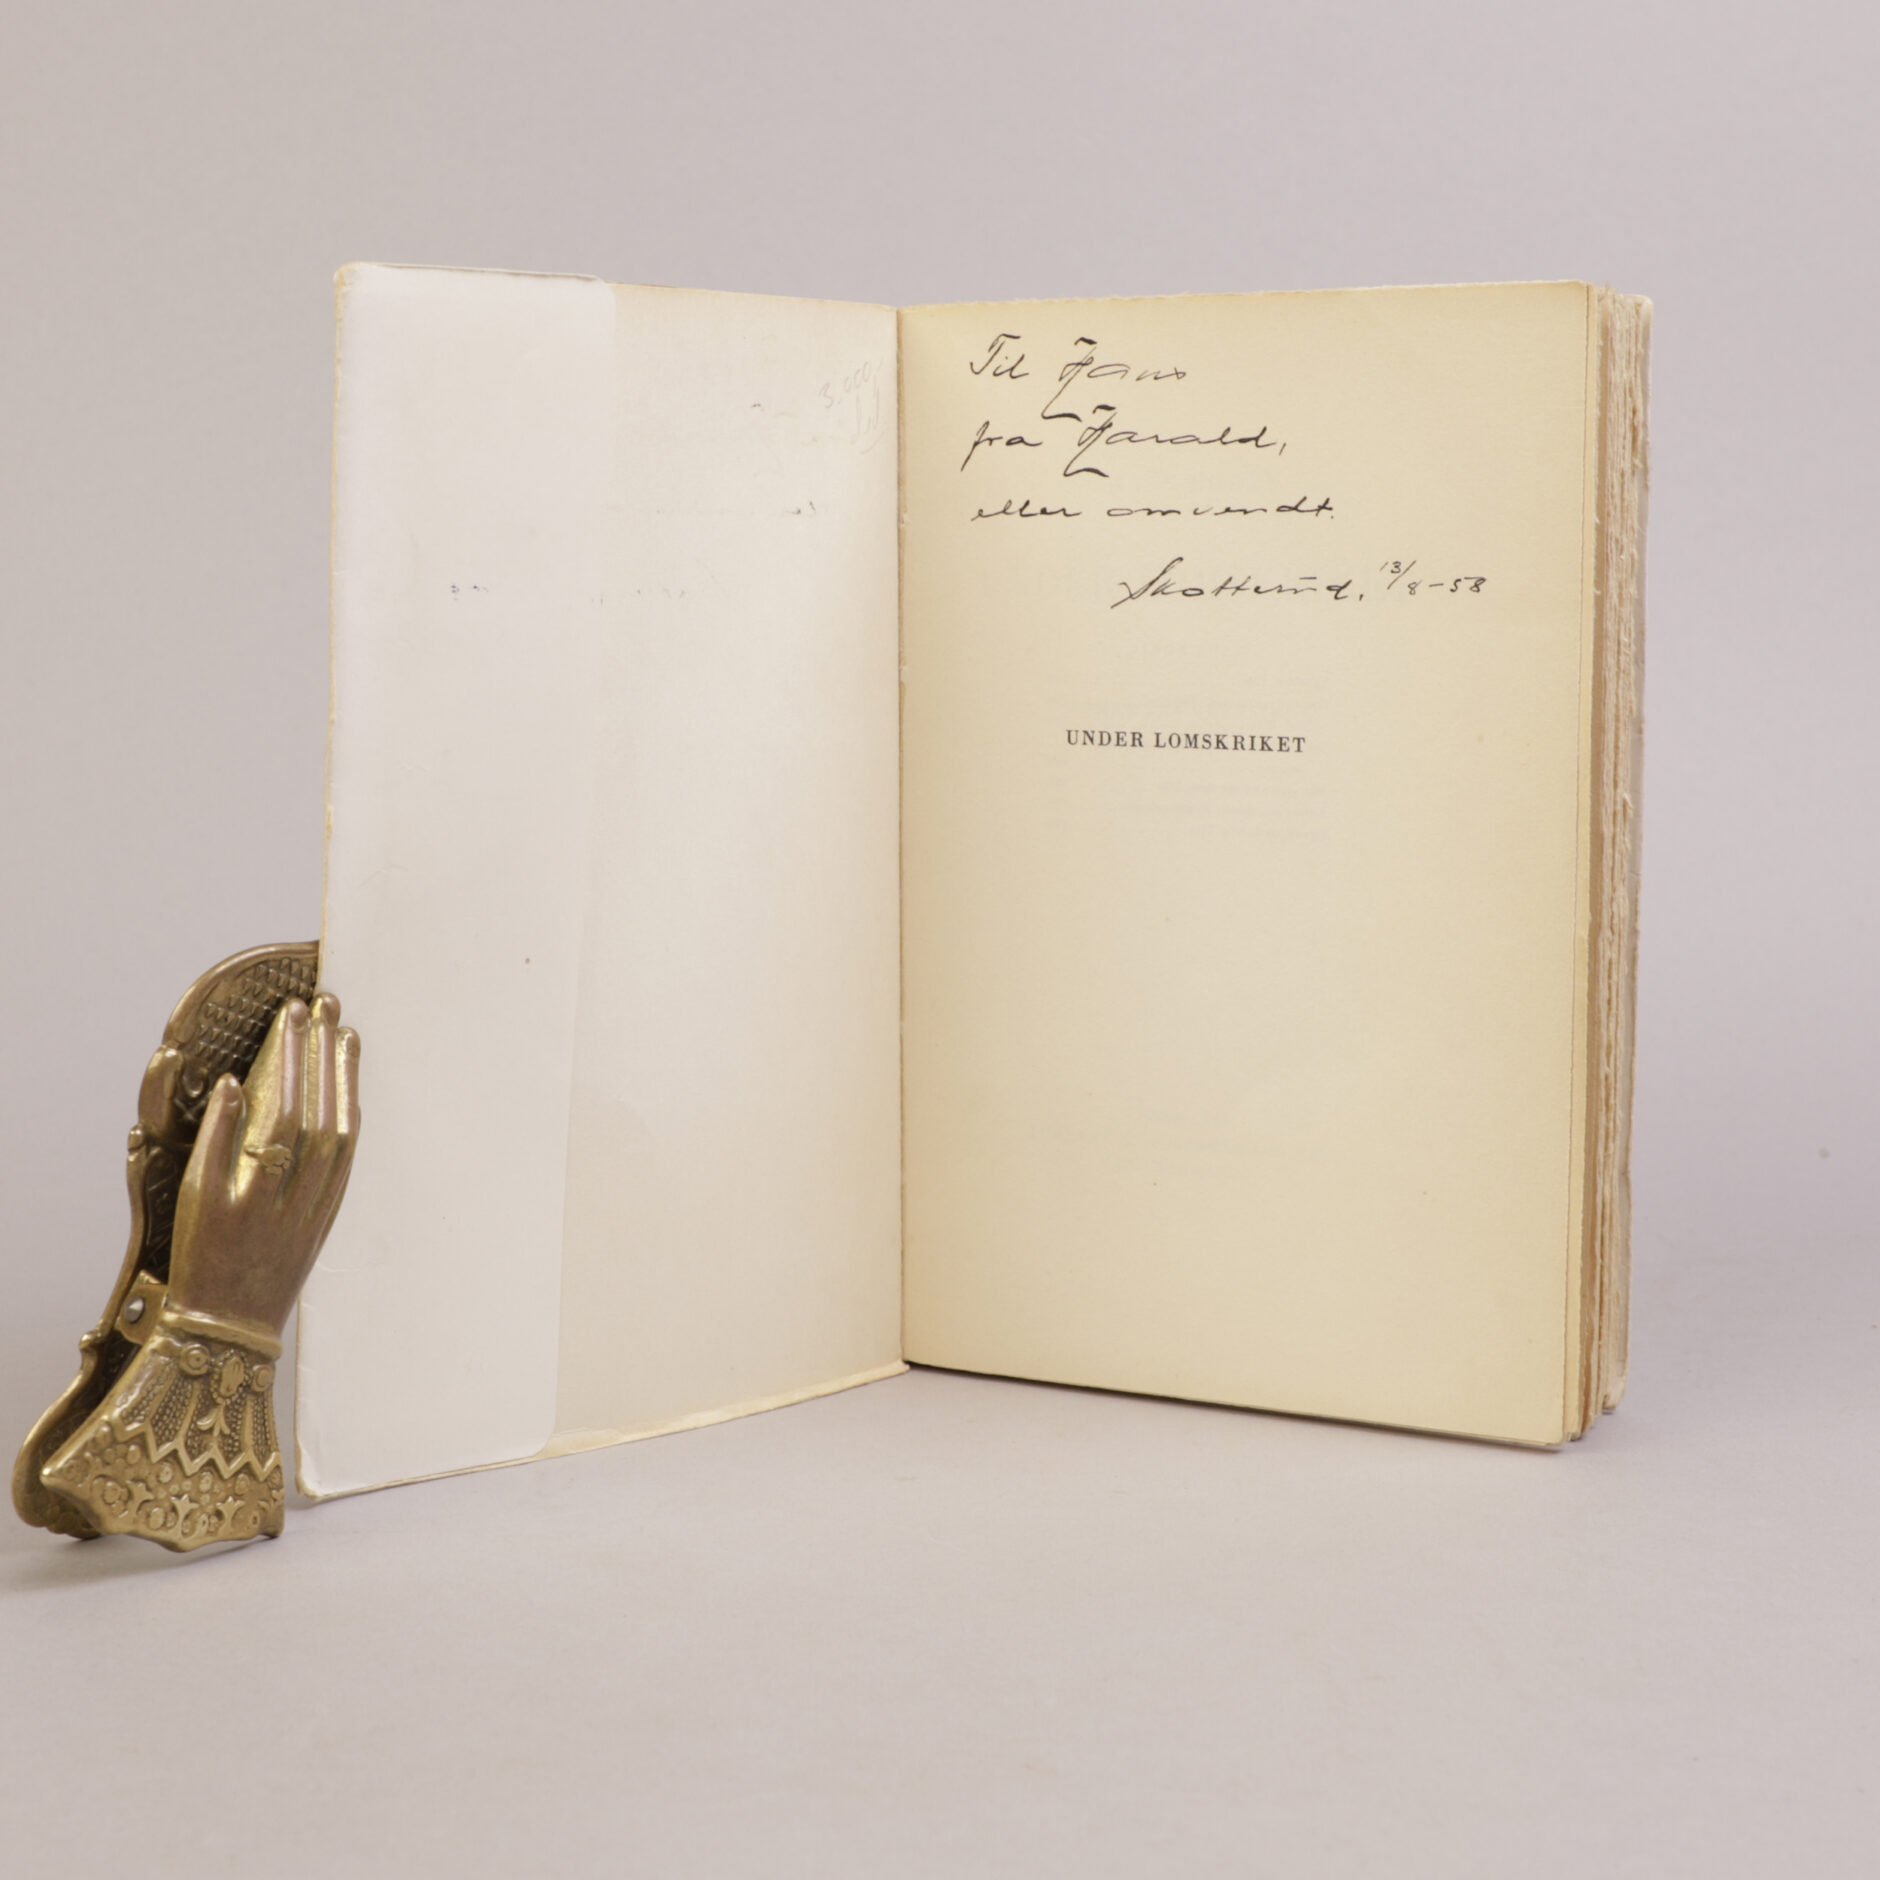 3.000,-
Til Hans
fra Harald,
eller omvendt.
Skotterud, 13/8-58
UNDER LOMSKRIKET